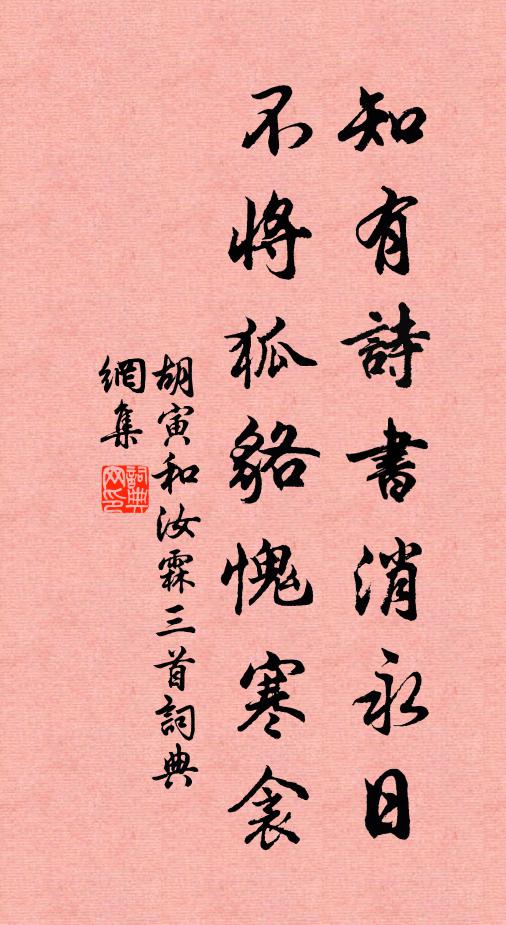 知有詩書消永日
不將狐貉愧寒衾
胡寅和汝霖三首詞典
網集
詞典
网印